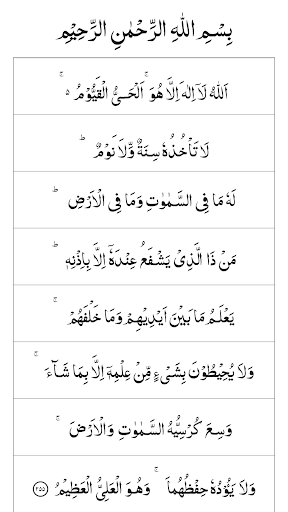 بِسْمِ اللهِ الرَّحْمٰنِ الرَّحِيْمِ
اَللهُ لَاۤ اِلٰهَ اِلَّا هُوَ ۚ اَلْحَىُّ الْقَيُّوْمُ ۚ ٥
لَا تَاْخُذُهٗ سِنَةٌ وَّلَا نَوْمٌ ؕ
لَهٗ مَا فِى السَّمٰوٰتِ وَمَا فِى الْاَرْضِ ؕ
مَنْ ذَا الَّذِىْ يَشْفَعُ عِنْدَهٗۤ اِلَّا بِاِذْنِهٖ ؕ
يَعْلَمُ مَا بَيْنَ اَيْدِيْهِمْ وَمَا خَلْفَهُمْ ۚ
وَلَا يُحِيْطُوْنَ بِشَىْءٍ مِّنْ عِلْمِهٖۤ اِلَّا بِمَا شَآءَ ۚ
وَسِعَ كُرْسِيُّهُ السَّمٰوٰتِ وَالْاَرْضَ ۚ
وَلَا يَـُٔوْدُهٗ حِفْظُهُمَا ۚ وَهُوَ الْعَلِىُّ الْعَظِيْمُ ﴿۲۵۵﴾